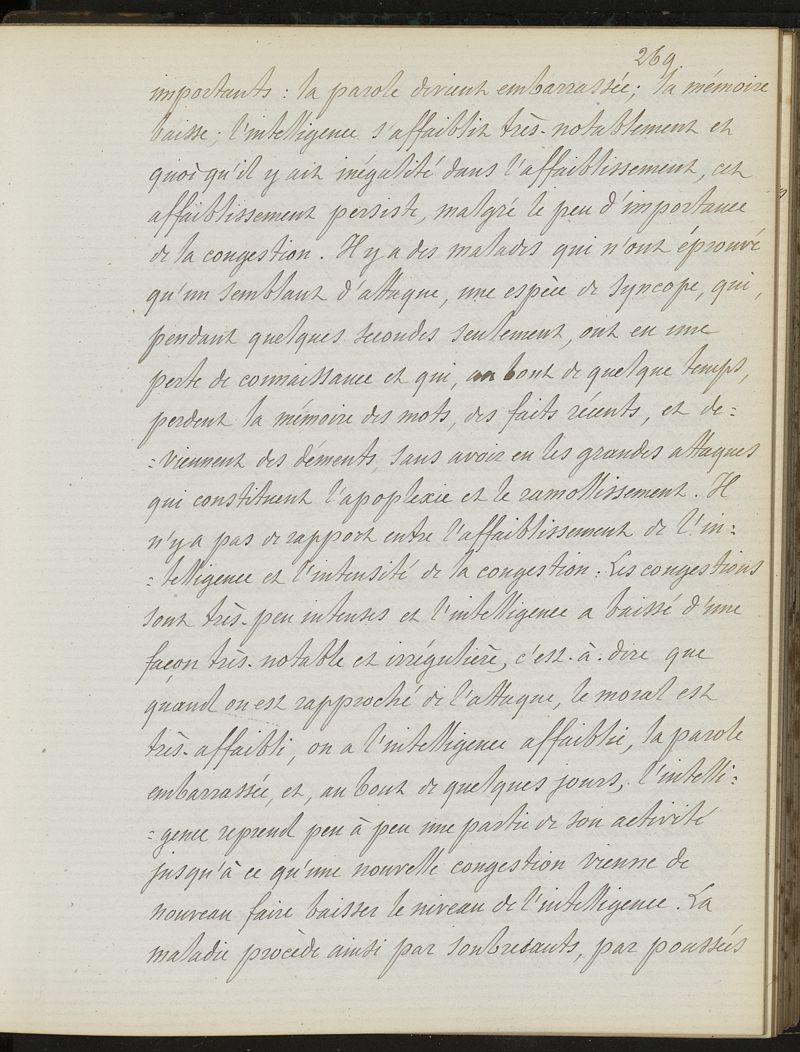 269.
importants : la parole devient embarrassée; la mémoire
baisse; l'intelligence s'affaiblit très-notablement et
quoiqu'il y ait inégalité dans l'affaiblissement, cet
affaiblissement persiste, malgré le peu d'importance
de la congestion. Il y a des malades qui n'ont éprouvé
qu'un semblant d'attaque, une espèce de syncope, qui,
pendant quelques secondes seulement, ont eu une
perte de connaissance et qui, au bout de quelque temps,
perdent la mémoire des mots, des faits récents, et de=
=viennent des déments, sans avoir eu les grandes attaques
qui constituent l'apoplexie et le ramollissement. Il
n'y a pas de rapport entre l'affaiblissement de l'in=
=telligence et l'intensité de la congestion : Les congestions
sont très-peu intenses et l'intelligence a baissé d'une
façon très-notable et irrégulière, c'est-à-dire que
quand on est rapproché de l'attaque, le moral est
très-affaibli, on a l'intelligence affaiblie, la parole
embarrassée, et, au bout de quelques jours, l'intelli=
=gence reprend peu à peu une partie de son activité
jusqu'à ce qu'une nouvelle congestion vienne de
nouveau faire baisser le niveau de l'intelligence. La
maladie procède ainsi par soubresauts, par poussées